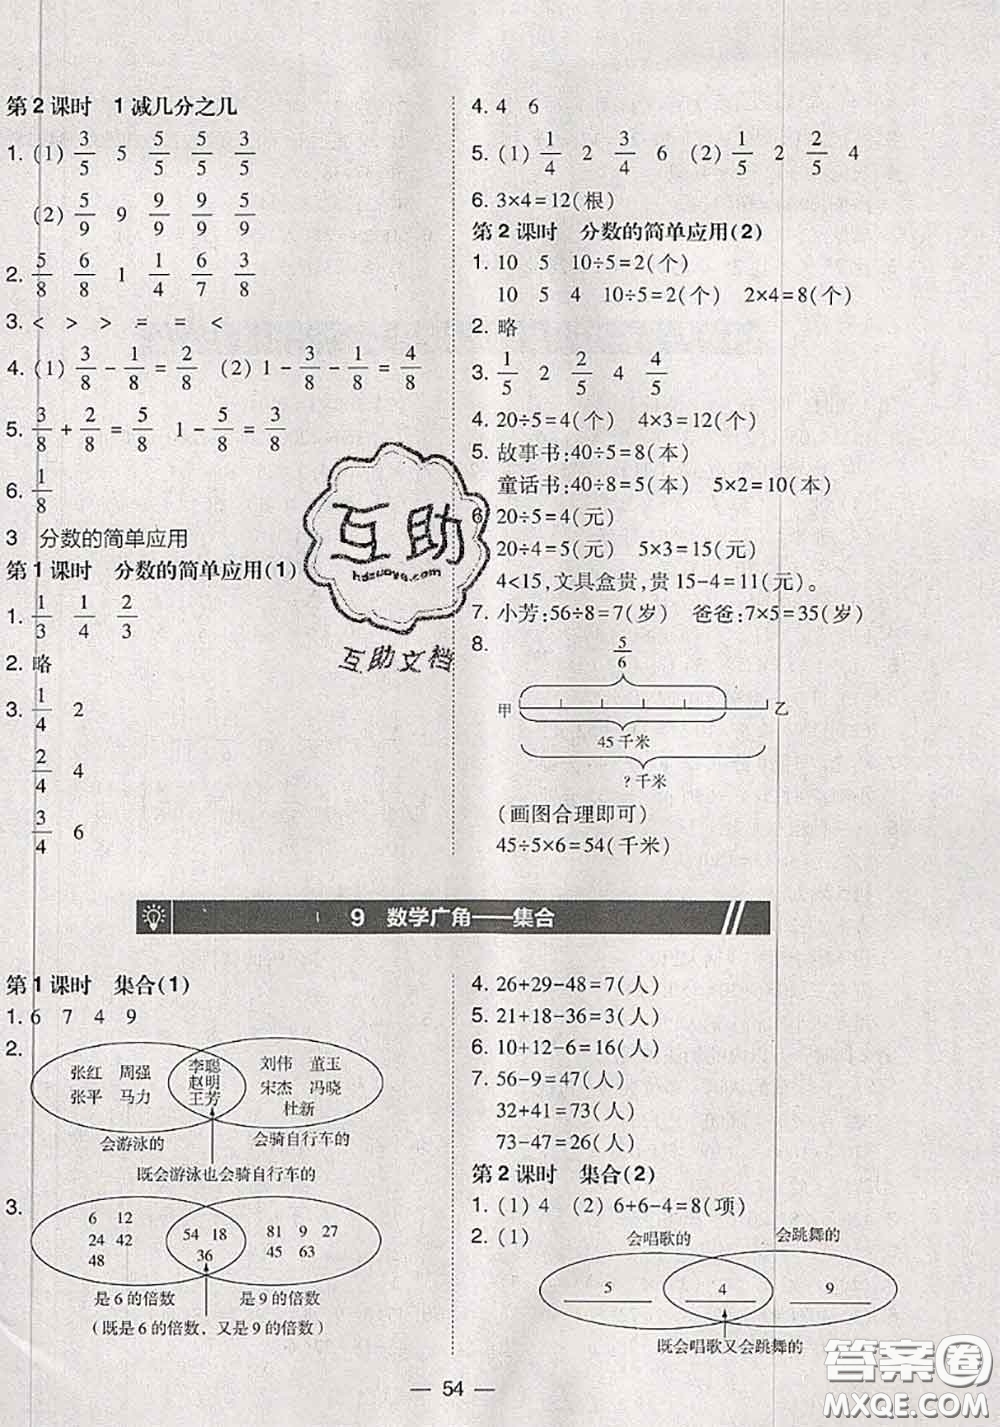 第2课时 1减几分之几
1. (1) 3/5 5 5/5 5/5 3/5
(2) 5/9 9 9/9 9/9 5/9
2. 5/8 6/8 1 1/4 6/7 3/8
3. < > > = = <
4. (1) 3/8 - 1/8 = 2/8 (2) 1 - 3/8 - 1/8 = 4/8
5. 3/8 + 2/8 = 5/8 1 - 5/8 = 3/8
6. 1/8
3 分数的简单应用
第1课时 分数的简单应用(1)
1. 1/3 1/4 2/3
2. 略
3. 1/4 2
2/4 4
3/4 6
4. 4 6
5. (1) 1/4 2 3/4 6 (2) 1/5 2 2/5 4
6. 3×4=12(根)
第2课时 分数的简单应用(2)
1. 10 5 10÷5=2(个)
10 5 4 10÷5=2(个) 2×4=8(个)
2. 略
3. 1/5 2 2/5 4 4/5
4. 20÷5=4(个) 4×3=12(个)
5. 故事书:40÷5=8(本)
童话书:40÷8=5(本) 5×2=10(本)
6. 20÷5=4(元)
20÷4=5(元) 5×3=15(元)
4<15,文具盒贵,贵15-4=11(元)。
7. 小芳:56÷8=7(岁) 爸爸:7×5=35(岁)
8.
5/6
甲 乙
45千米
?千米
(画图合理即可)
45÷5×6=54(千米)
互助
hdzuoye.com
互助文档
9 数学广角——集合
第1课时 集合(1)
1. 6 7 4 9
2.
张红 周强 李聪 刘伟 董玉
张平 马力 赵明 宋杰 冯晓
王芳 杜新
会游泳的 会骑自行车的
既会游泳也会骑自行车的
3.
6 12 54 18 81 9 27
24 42 36 45 63
48
是6的倍数 是9的倍数
(既是6的倍数,又是9的倍数)
4. 26+29-48=7(人)
5. 21+18-36=3(人)
6. 10+12-6=16(人)
7. 56-9=47(人)
32+41=73(人)
73-47=26(人)
第2课时 集合(2)
1. (1) 4 (2) 6+6-4=8(项)
2. (1)
会唱歌的 会跳舞的
5 4 9
既会唱歌又会跳舞的
— 54 —
答案圈
MXQE.COM